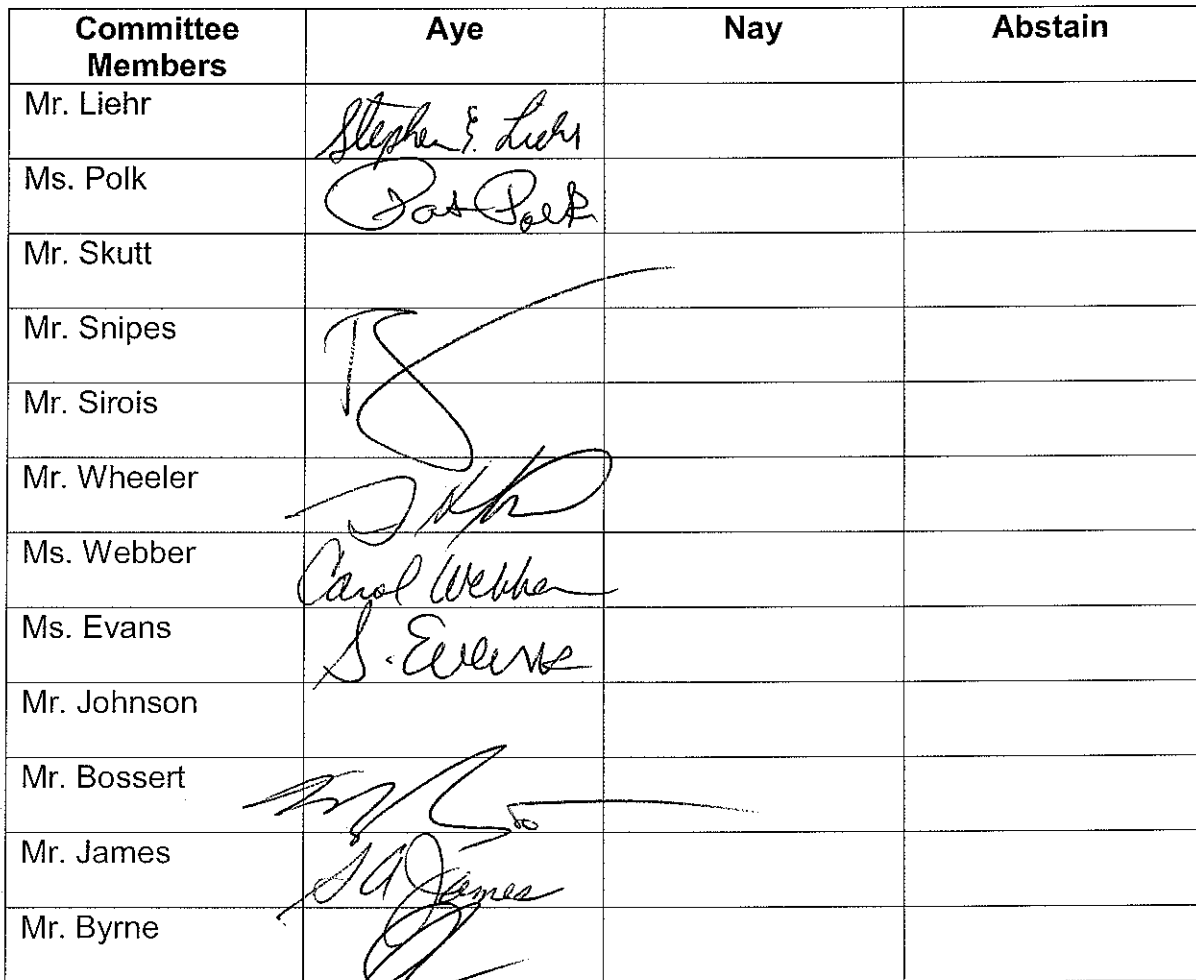 Committee Members Aye Nay Abstain
Mr. Liehr Stephen E. Liehr
Ms. Polk Pat Polk
Mr. Skutt
Mr. Snipes TS
Mr. Sirois
Mr. Wheeler
Ms. Webber Carol Webber
Ms. Evans S. Evans
Mr. Johnson
Mr. Bossert
Mr. James SA James
Mr. Byrne